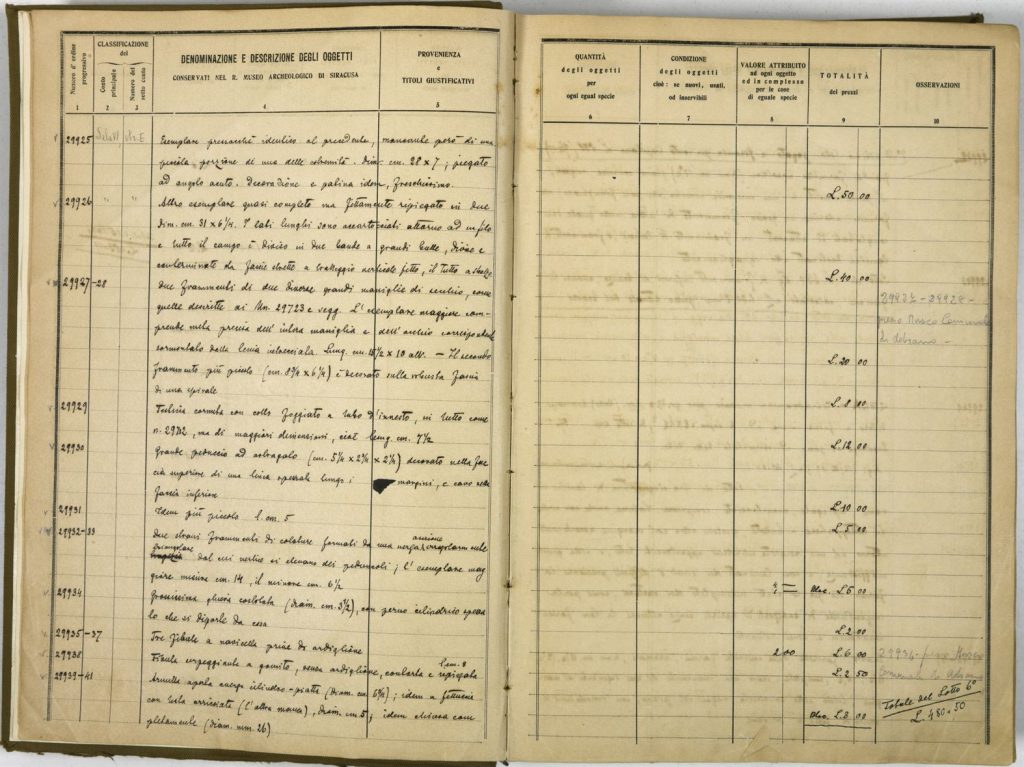 Numero d'ordine progressivo
CLASSIFICAZIONE
del
Conto principale
Numero del sotto conto
DENOMINAZIONE E DESCRIZIONE DEGLI OGGETTI
CONSERVATI NEL R. MUSEO ARCHEOLOGICO DI SIRACUSA
PROVENIENZA
e
TITOLI GIUSTIFICATIVI
1 2 3 4 5
29925 Esemplare pressoché identico al precedente, mancante però di una
piccola porzione di una delle estremità. Dim. cm. 28 x 7; piegato
ad angolo acuto. Decorazione e patina idem, freschissimo.
29926 Altro esemplare quasi completo ma nettamente ripiegato in due
dim. cm. 31 x 6¼. I lati lunghi sono accartocciati attorno ad un filo
e tutto il campo è diviso in due bande a grandi bulle, divise e
conterminate da fascie strette a tratteggio verticale fitto, il tutto a sbalzo
29927-28 Due frammenti di due diverse grandi maniglie di scudio, come
quelle descritte ai Nn. 29723 e segg. L'esemplare maggiore com-
prende metà precisa dell'intera maniglia e dell'occhio corrispondente
sormontato dalla treccia Lung. cm. 15½ x 10 alt. — Il secondo
frammento più piccolo (cm. 8¾ x 6¼) è decorato sulla robusta fascia
di una spirale
29929 cornuta con collo foggiato a tubo d'innesto, in tutto come
n. 29712, ma di maggiori dimensioni, cioè lung. cm. 7½
29930 Grande peduccio ad astragalo (cm. 5¼ x 2¾ x 2¼) decorato nella fac-
cia superiore di una linea spezzata lungo i margini, e cavo nella
faccia inferiore
29931 Idem più piccolo l. cm. 5
29932-33 Due strani frammenti di colature formati da una verga
dal cui vertice si elevano dei peduncoli; l'esemplare mag-
giore misura cm. 14, il minore cm. 6½
29934 Grossissima ghiera costolata (diam. cm. 3½), con perno cilindrico spezza-
to che si diparte da essa
29935-37 Tre fibule a navicella prive di ardiglione
29938 Fibula serpeggiante a gomito, senza ardiglione, contorta e ripiegata l. cm. 8
29939-41 Armilla aperta a verga cilindro-piatta (diam. cm. 6¾); idem a fettuccia
con testa arricciata (l'altra manca), diam. cm. 5; idem chiusa com-
pletamente (diam. mm. 26)
QUANTITÀ
degli oggetti
per
ogni egual specie
CONDIZIONE
degli oggetti
cioè: se nuovi, usati,
od inservibili
VALORE ATTRIBUITO
ad ogni oggetto
ed in complesso
per le cose
di eguale specie
TOTALITÀ
dei prezzi
OSSERVAZIONI
6 7 8 9 10
L. 50 00
L. 40 00
29927-29928-
presso Museo Comunale
di Adrano -
L. 20 00
L. 8 00
L. 12 00
L. 10 00
L. 5 00
L. 6 00
L. 2 00
2.00 L. 6 00
L. 2 50
L. 3 00
29934- presso Museo
Comunale di Adrano
Totale del Lotto 6°
L. 480.50